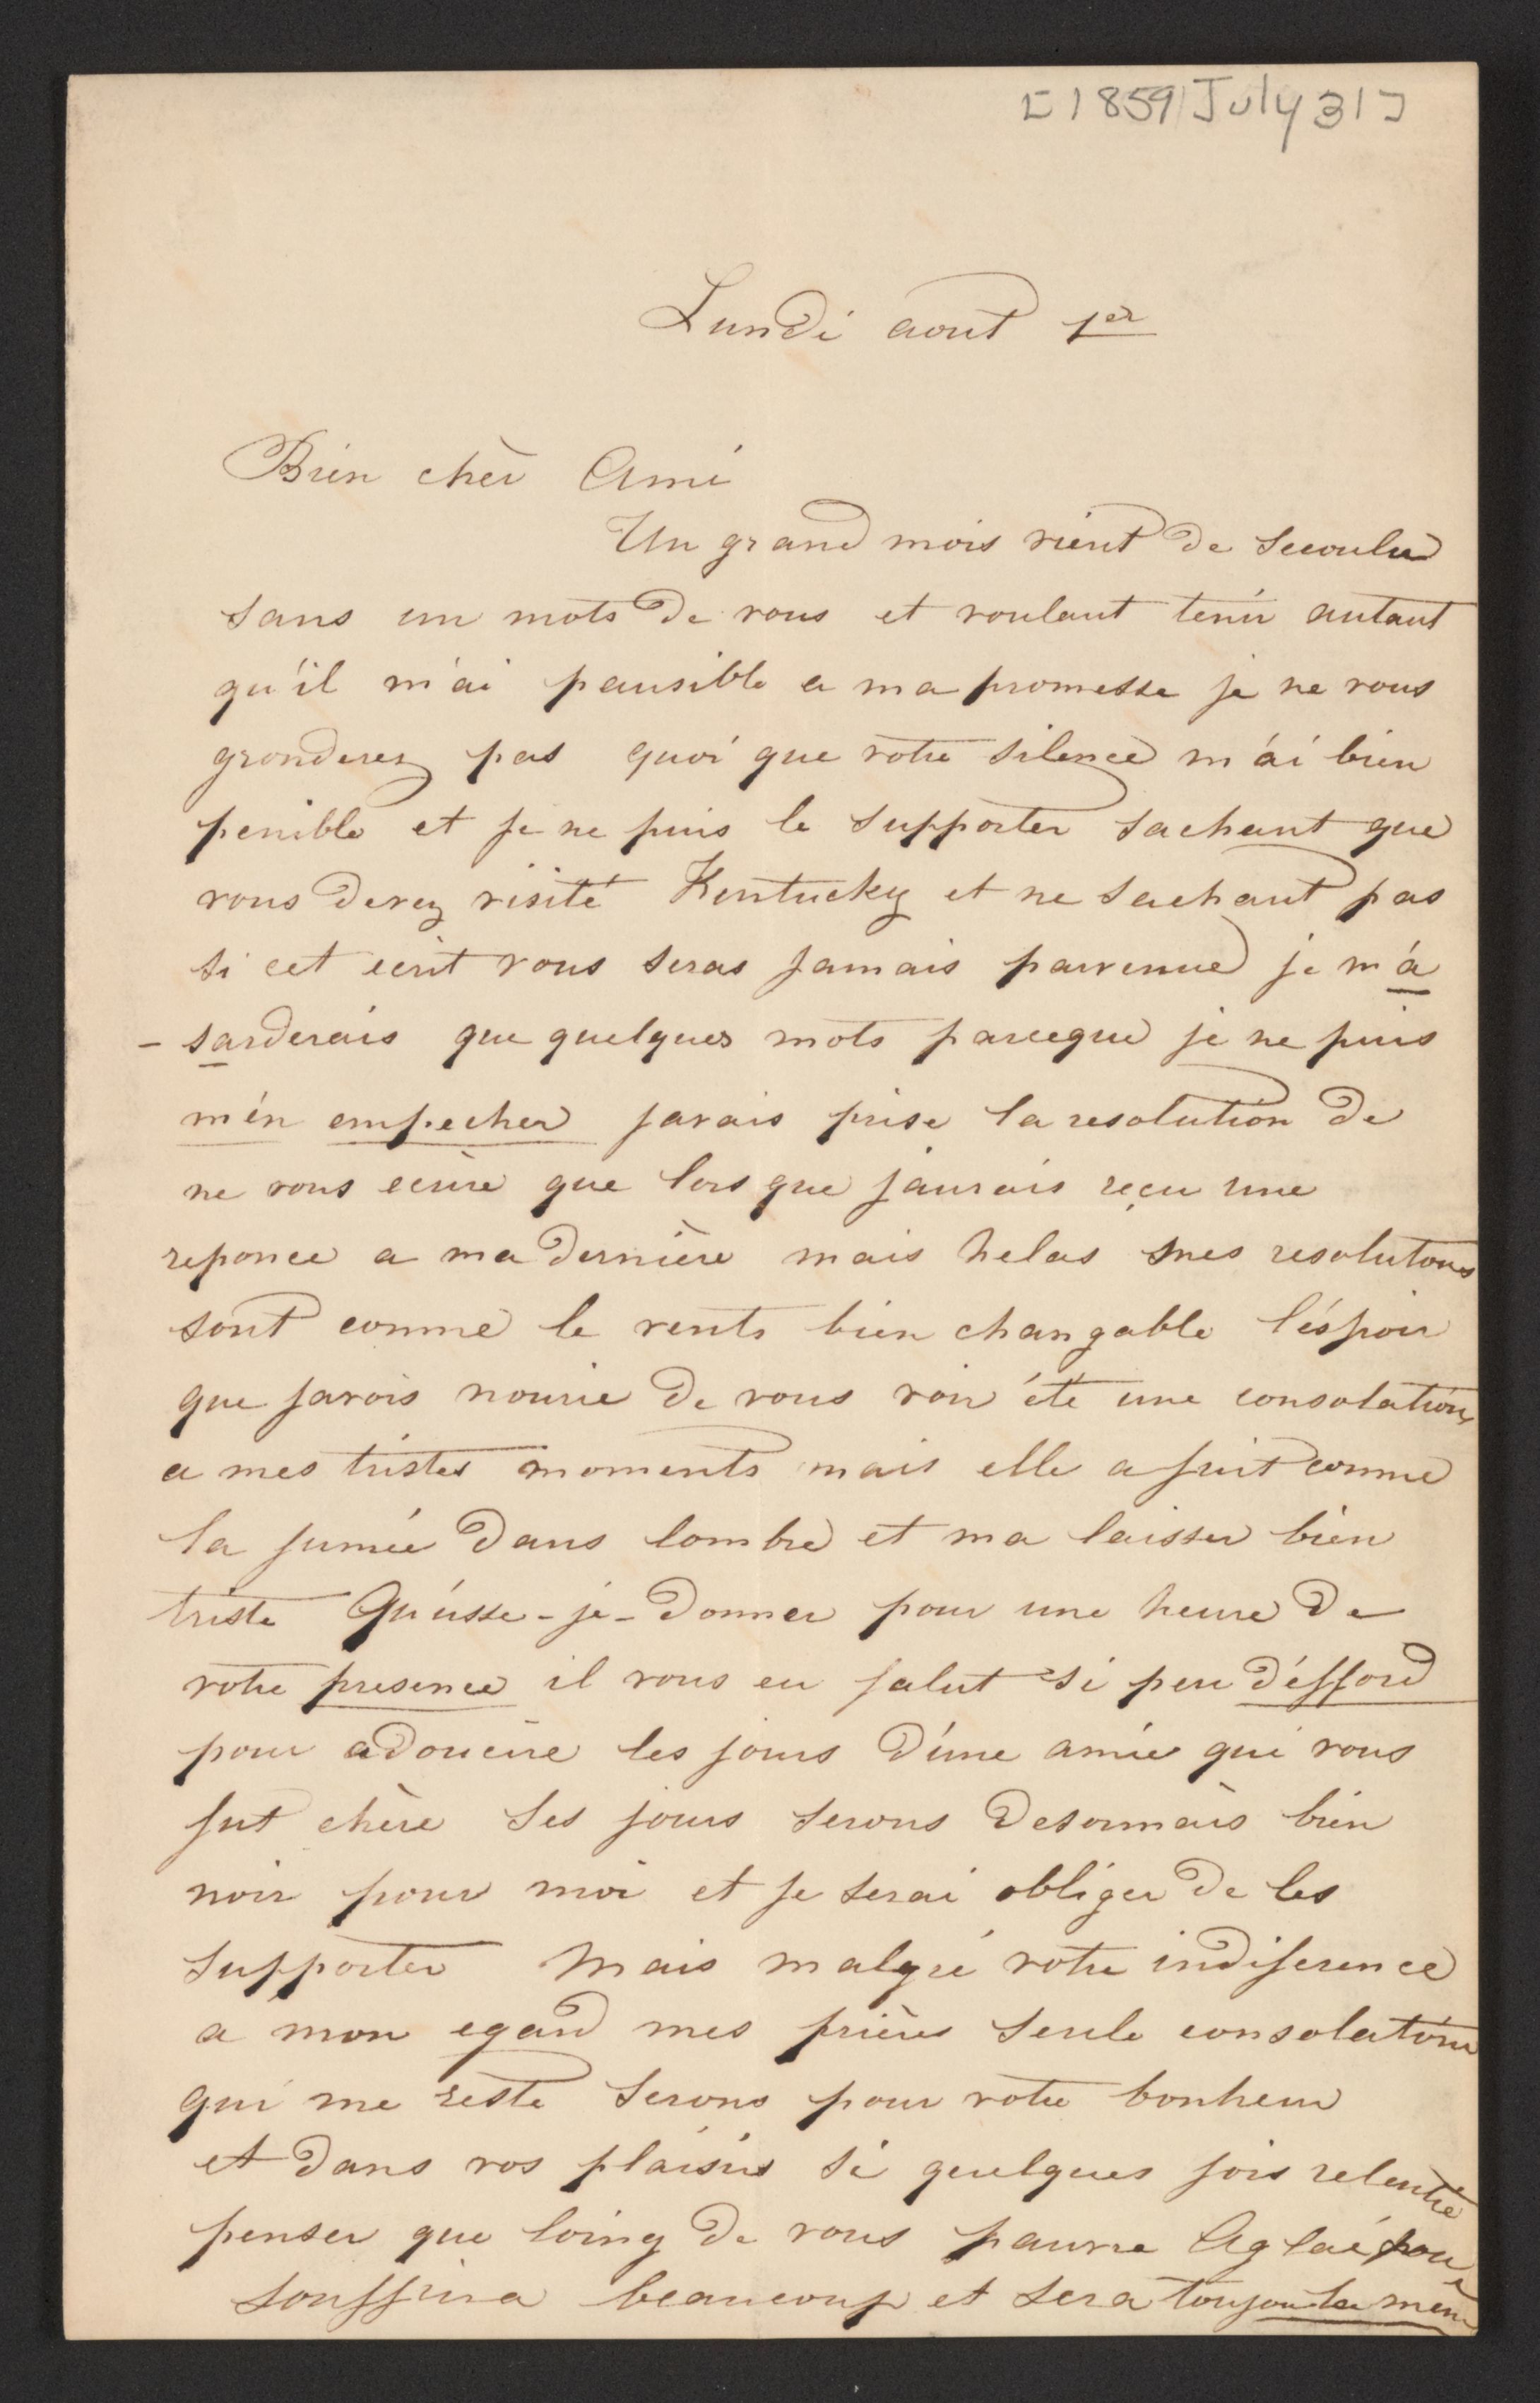 [1859 July 31]
Lundi aout 1er
Bien chèr Ami
Un grand mois vient de secoulee
sans un mots de vous et voulant tenir autant
qu'il m'ai pausible a ma promesse je ne vous
gronderez pas quoi que votre silence m'ái bien
penible et je ne puis le supporter sachant que
vous devez visité Kentucky et ne sachant pas
si cet ecrit vous seras jamais parvenue je m'á
- sarderais que quelques mots parceque je ne puis
m'én empecher javais prise la resolution de
ne vous ecrire que lors que jaurais reçu une
reponce a ma dernière mais helas mes resolutons
sont comme le vents bien changable l'éspoir
que javois nourie de vous voir été une consolation
a mes tristes moments mais elle a fuit comme
la fumée dans lombre et ma laisser bien
triste Qu'éusse-je-donner pour une heure de
votre presence il vous eu falut si peu d'éfford
pour adoucire les jours d'une amie qui vous
fut chère Ses jours serons desormais bien
noir pour moi et je serai obliger de les
supporter Mais malgré votre indiference
a mon egard mes prières seule consolation
qui me reste serons pour votre bonheur
et dans vos plaisirs si quelques fois
penser que loing de vous pauvre Aglaé
souffrira beaucoup et sera toujou la meme